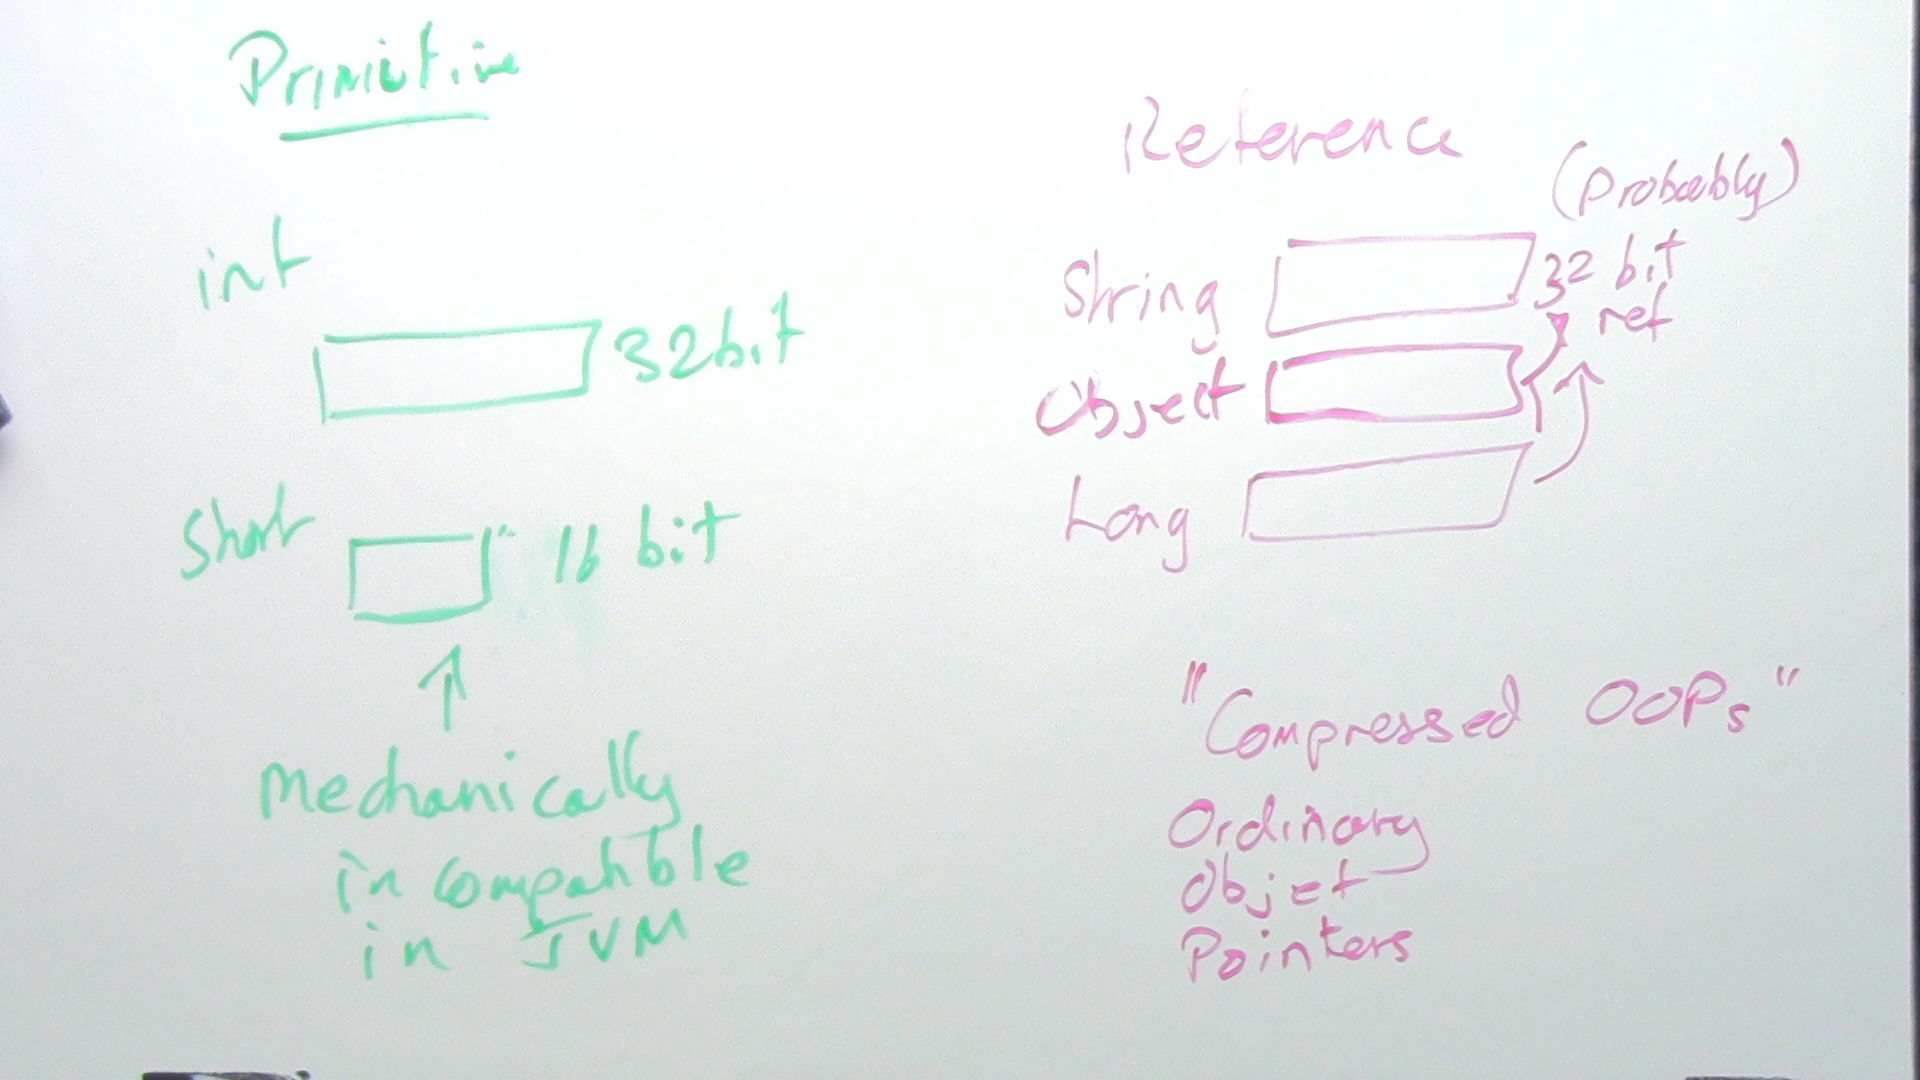 Primitive
int
32bit
Short
16 bit
Mechanically
in compatible
in JVM
Reference
(Probably)
String
32 bit
ref
Object
Long
"Compressed OOPs"
Ordinary
Objet
Pointers